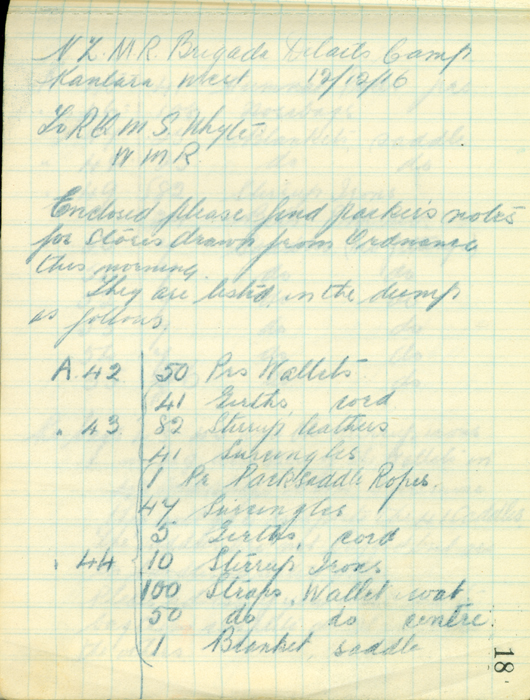 N Z. M R. Brigade Details Camp
Kantara West 12/12/16
To R Q M S. Whyte
W M R
Enclosed please find packers notes
for stores drawn from Ordnance
this morning.
They are listed in the dump
as follows.
A. 42 50 Prs Wallets
41 Girths, cord
" 43 82 Stirrup leathers
41 Surcingles
1 Pr Packsaddle Ropes.
47 Surcingles
5 Girths, cord
" 44 10 Stirrup Irons
100 Straps, Wallet coat
50 do do centre
1 Blanket, saddle
18